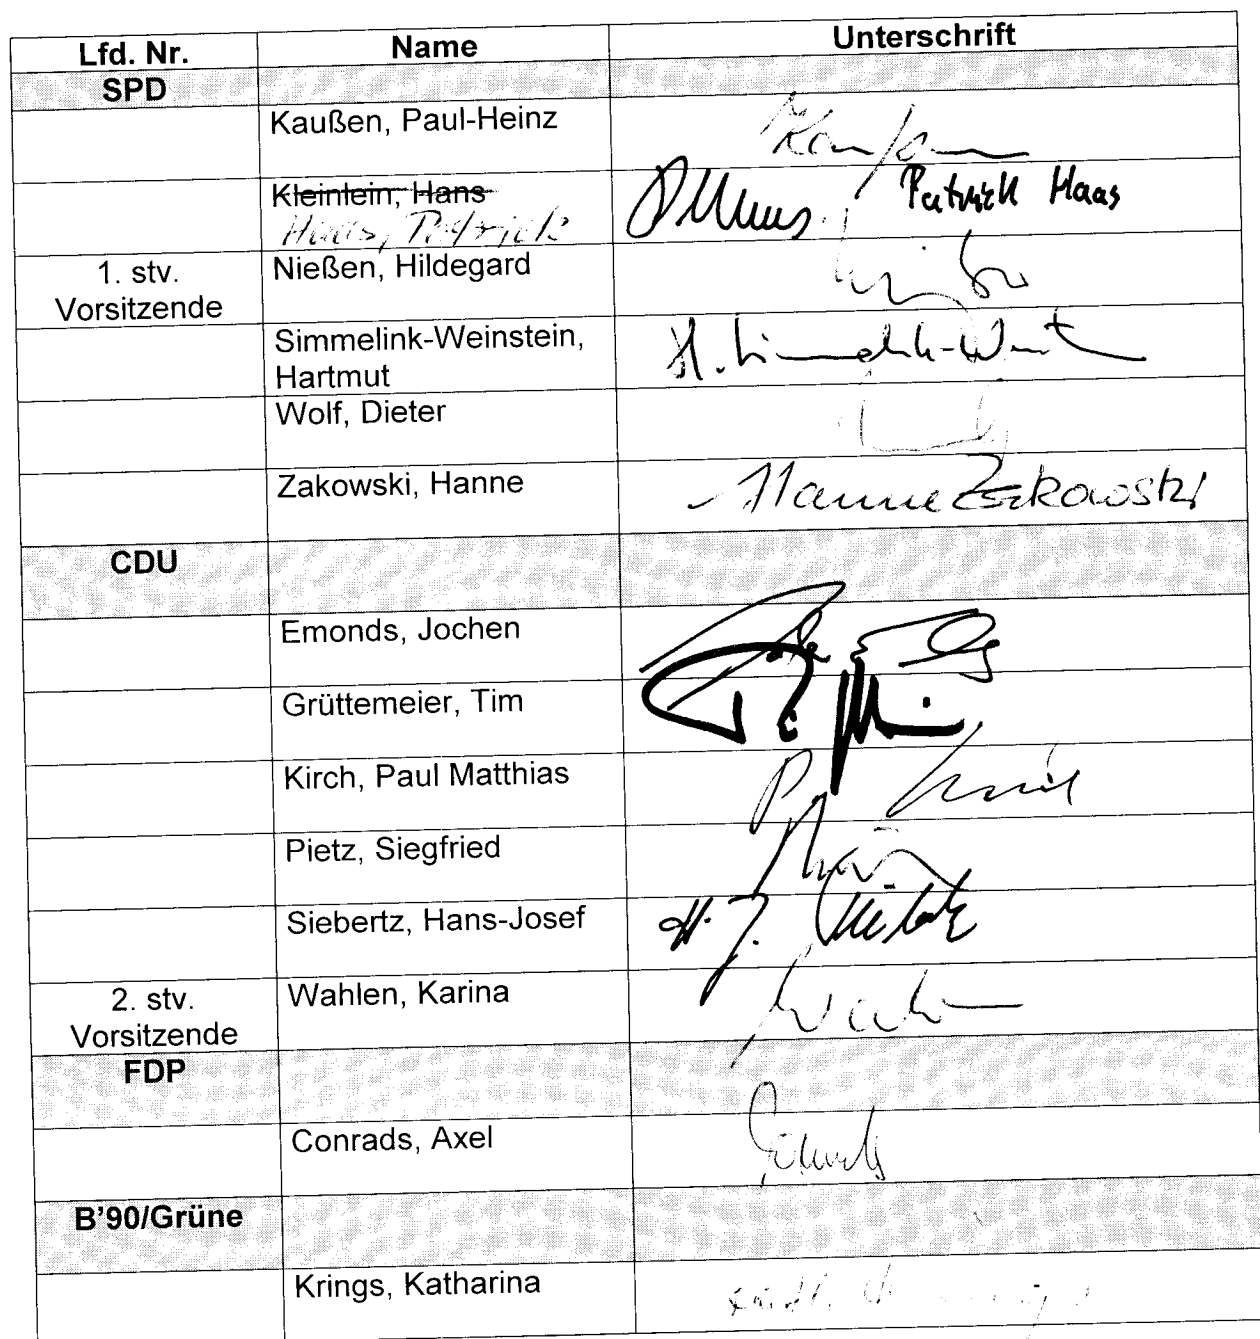 Lfd. Nr. Name Unterschrift
SPD
Kaußen, Paul-Heinz
Kleinlein, Hans Patrick Haas
Haas, Patrick
1. stv. Vorsitzende Nießen, Hildegard
Simmelink-Weinstein, Hartmut H. Simmelink-Weinstein
Wolf, Dieter
Zakowski, Hanne Hanne Zakowski
CDU
Emonds, Jochen
Grüttemeier, Tim
Kirch, Paul Matthias
Pietz, Siegfried
Siebertz, Hans-Josef H. J. Siebertz
2. stv. Vorsitzende Wahlen, Karina
FDP
Conrads, Axel
B'90/Grüne
Krings, Katharina